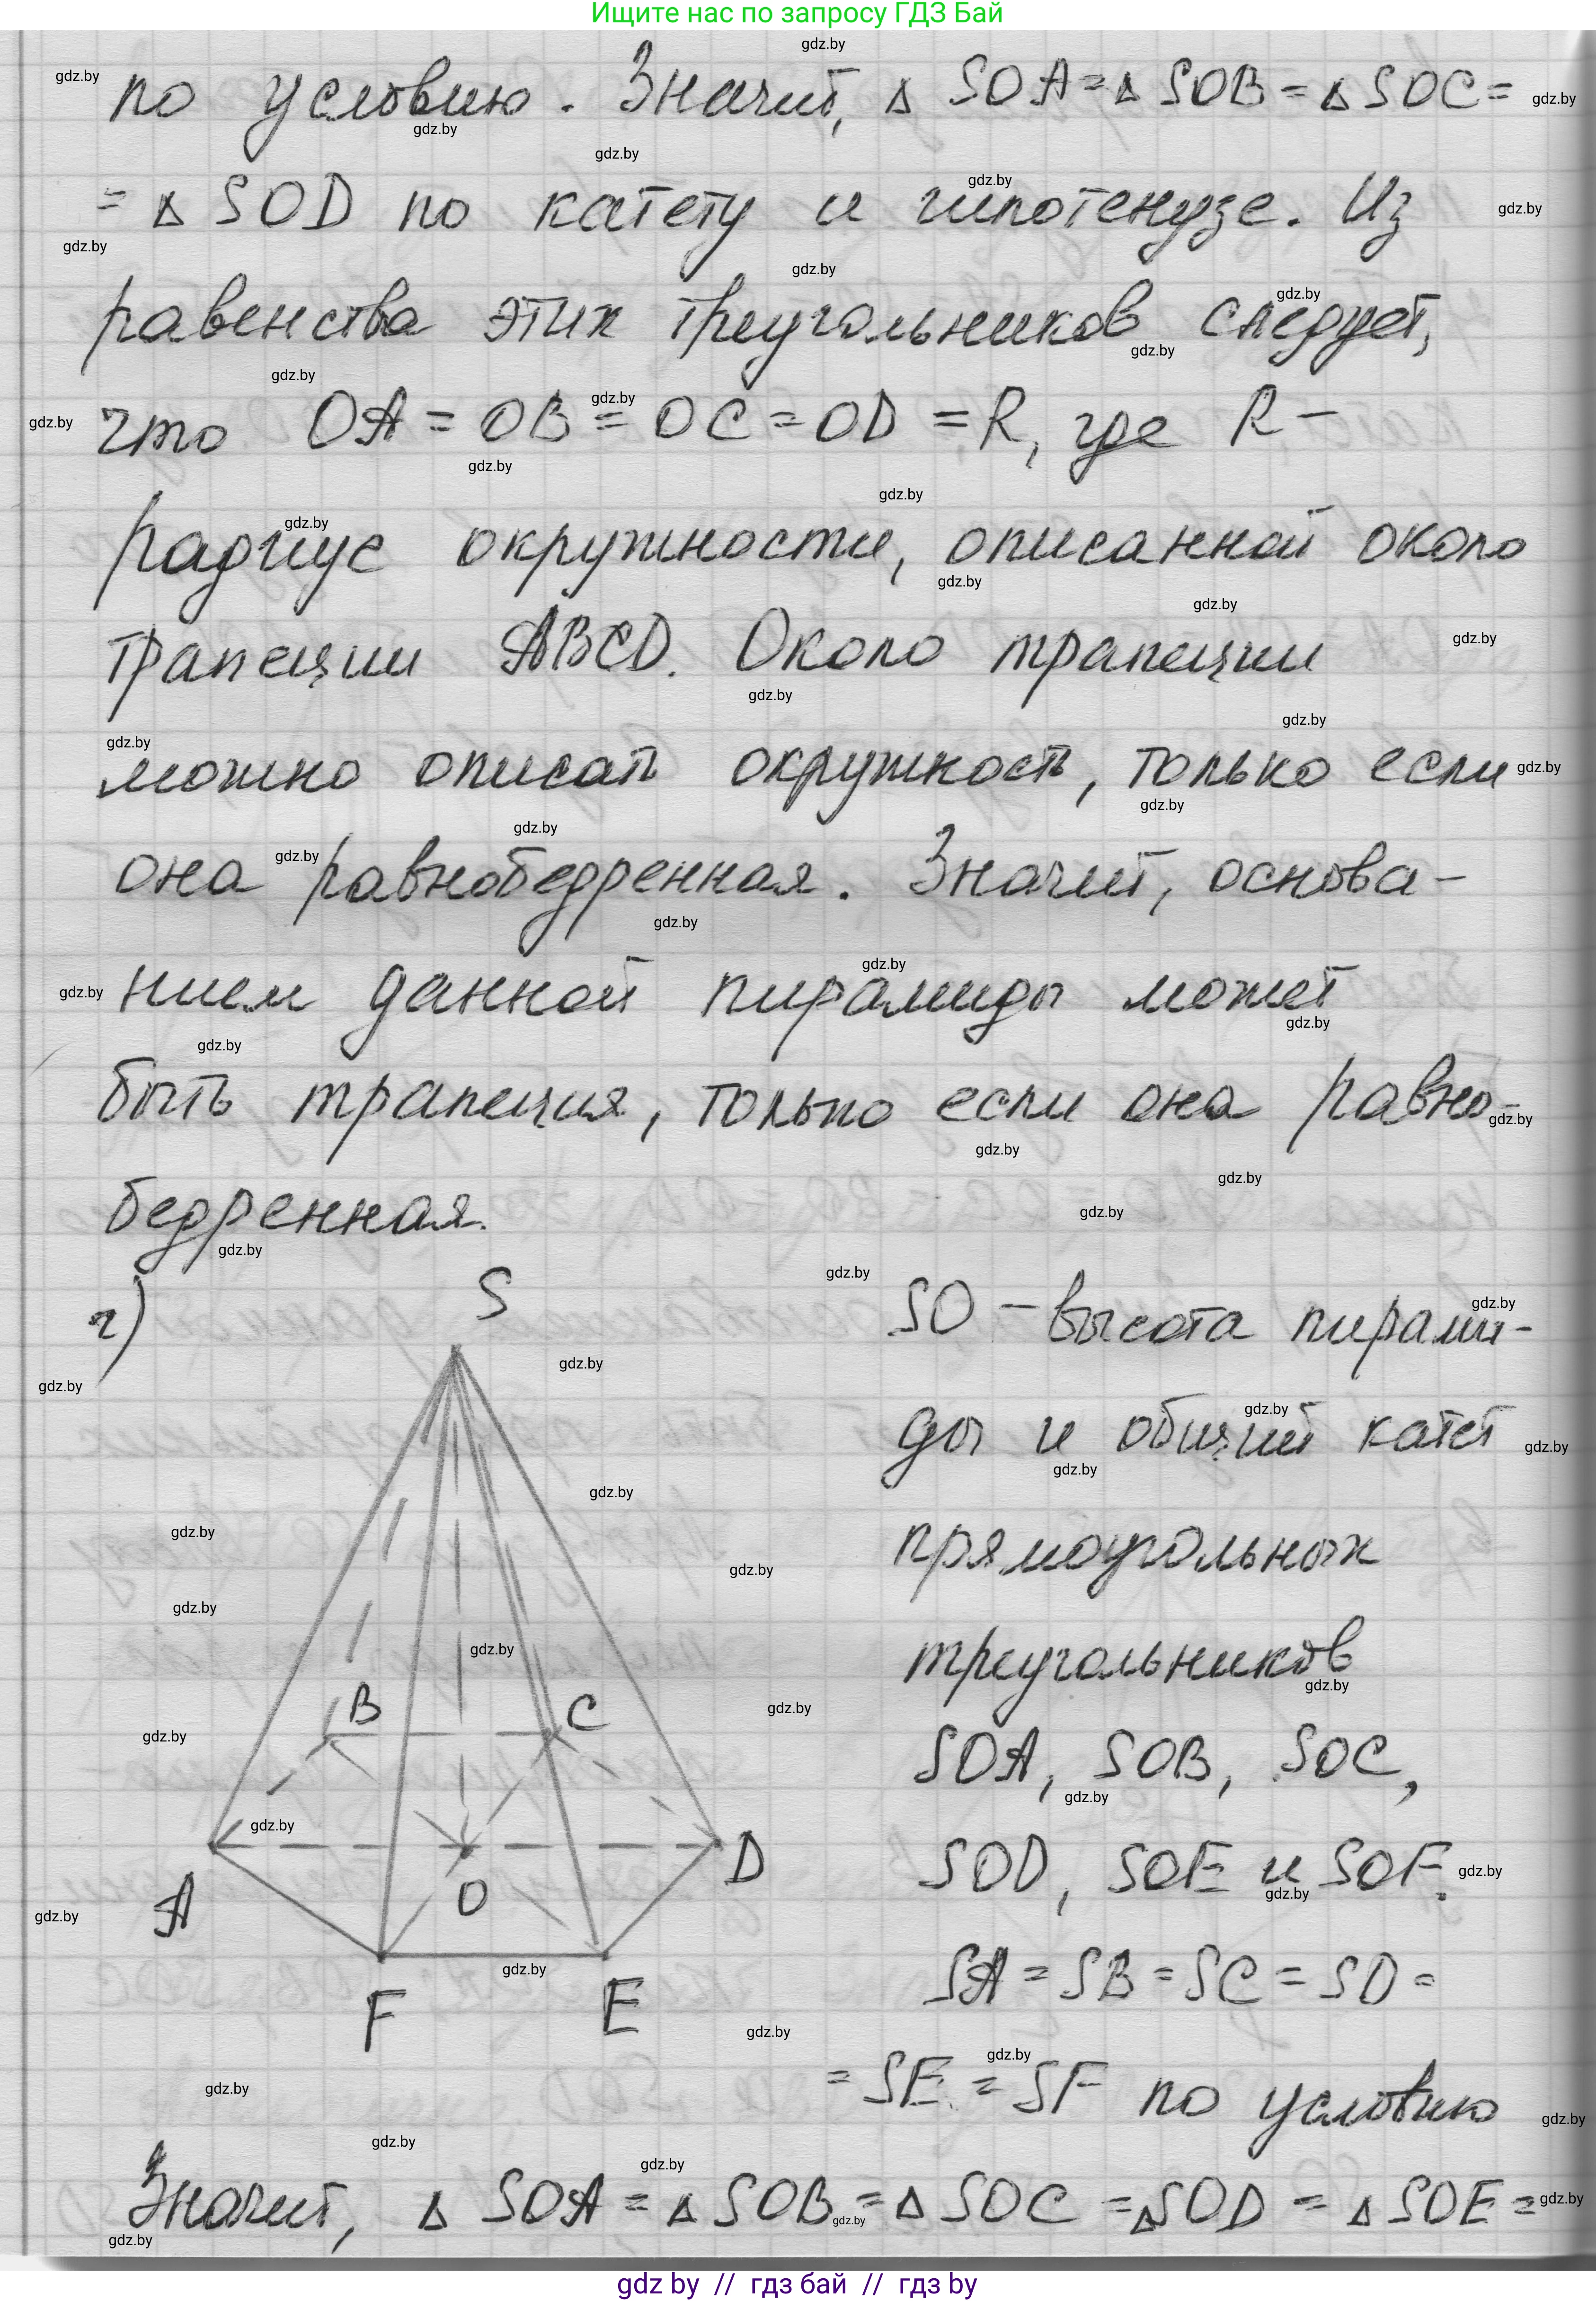 Ищите нас по запросу ГДЗ Бай
по условию. Значит, △ SOA = △ SOB = △ SOC =
= △ SOD по катету и гипотенузе. Из
равенства этих треугольников следует,
что OA = OB = OC = OD = R, где R –
радиус окружности, описанной около
трапеции ABCD. Около трапеции
можно описать окружность, только если
она равнобедренная. Значит, основа-
нием данной пирамиды может
быть трапеция, только если она равно-
бедренная.
г)
S
B
C
A
O
D
F
E
SO – высота пирами-
ды и общий катет
прямоугольных
треугольников
SOA, SOB, SOC,
SOD, SOE и SOF.
SA = SB = SC = SD =
= SE = SF по условию
Значит, △ SOA = △ SOB = △ SOC = △ SOD = △ SOE =
gdz by // гдз бай // гдз by